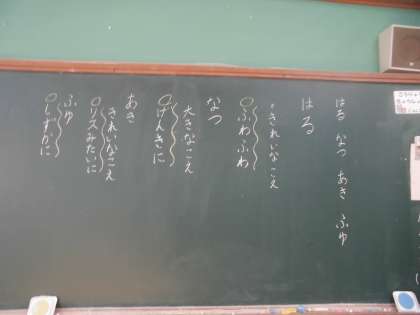 はる なつ あき ふゆ
はる
・きれいなこえ
○ふわふわ
なつ
大きなこえ
○げんきに
あき
きれいなこえ
○リスみたいに
ふゆ
○しずかに